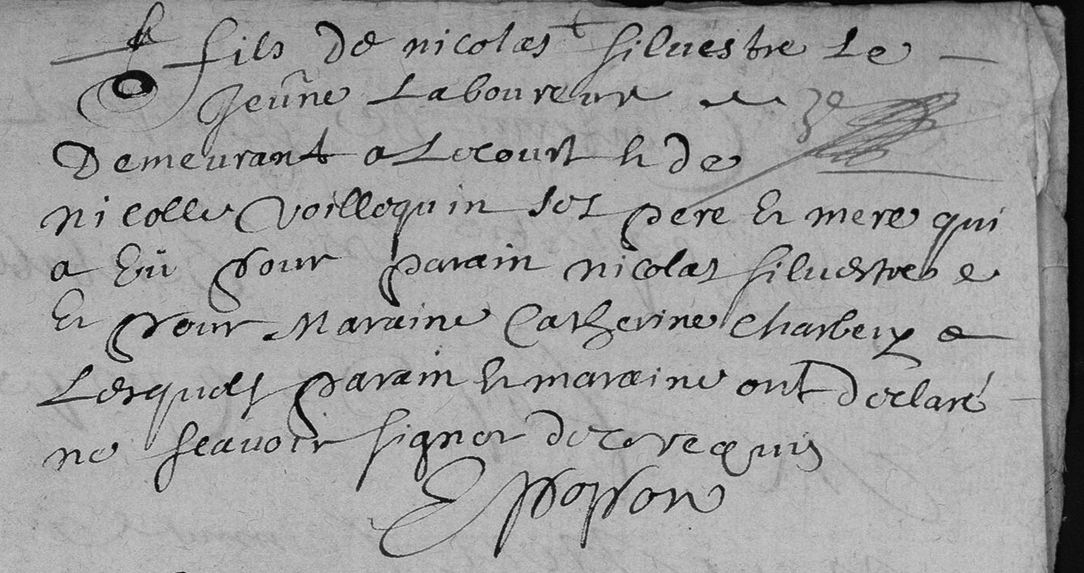 fils de nicolas silvestre Le
Jeune Laboureur
Demeurant a Lecourt & de
nicolle Voilloquin ses pere & mere qui
a Eü pour parain nicolas silvestre
Et pour Maraine Catherine Charbeux
Lesquels parain & maraine ont declaré
ne scavoir signer de ce requis